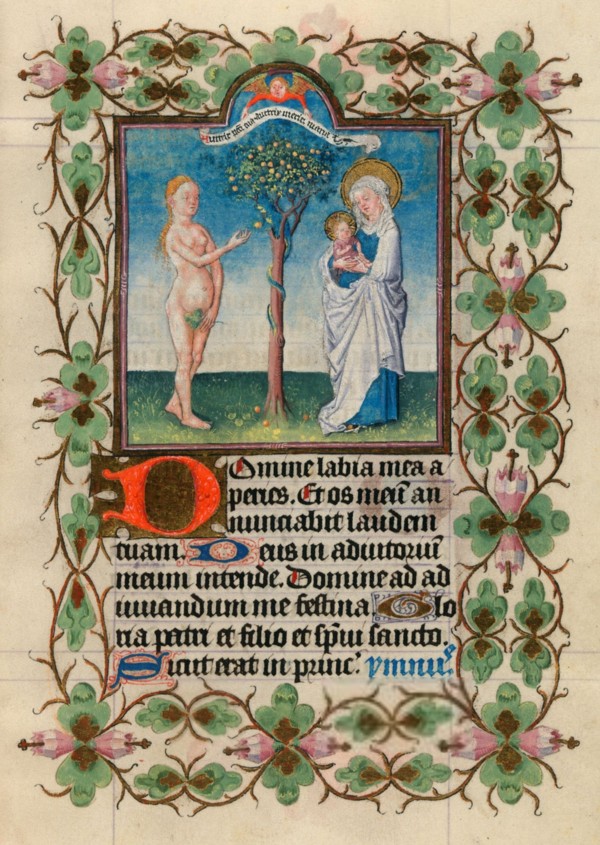 Domine labia mea a
peries. Et os meū an
nunciabit laudem
tuam. Deus in adiutoriū
meum intende. Domine ad ad
iuuandum me festina Glo
ria patri et filio et sp̄ui sancto.
Sicut erat in princ. ymnus.